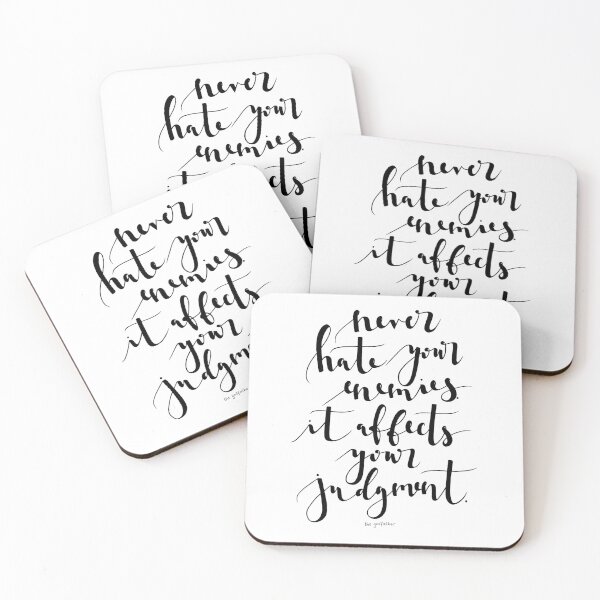 never
hate your
enemies.
it
never
hate your
enemies.
it affects
your
never
hate your
enemies.
it affects
your
the godfather
never
hate your
enemies.
it affects
your
judgment.
the godfather